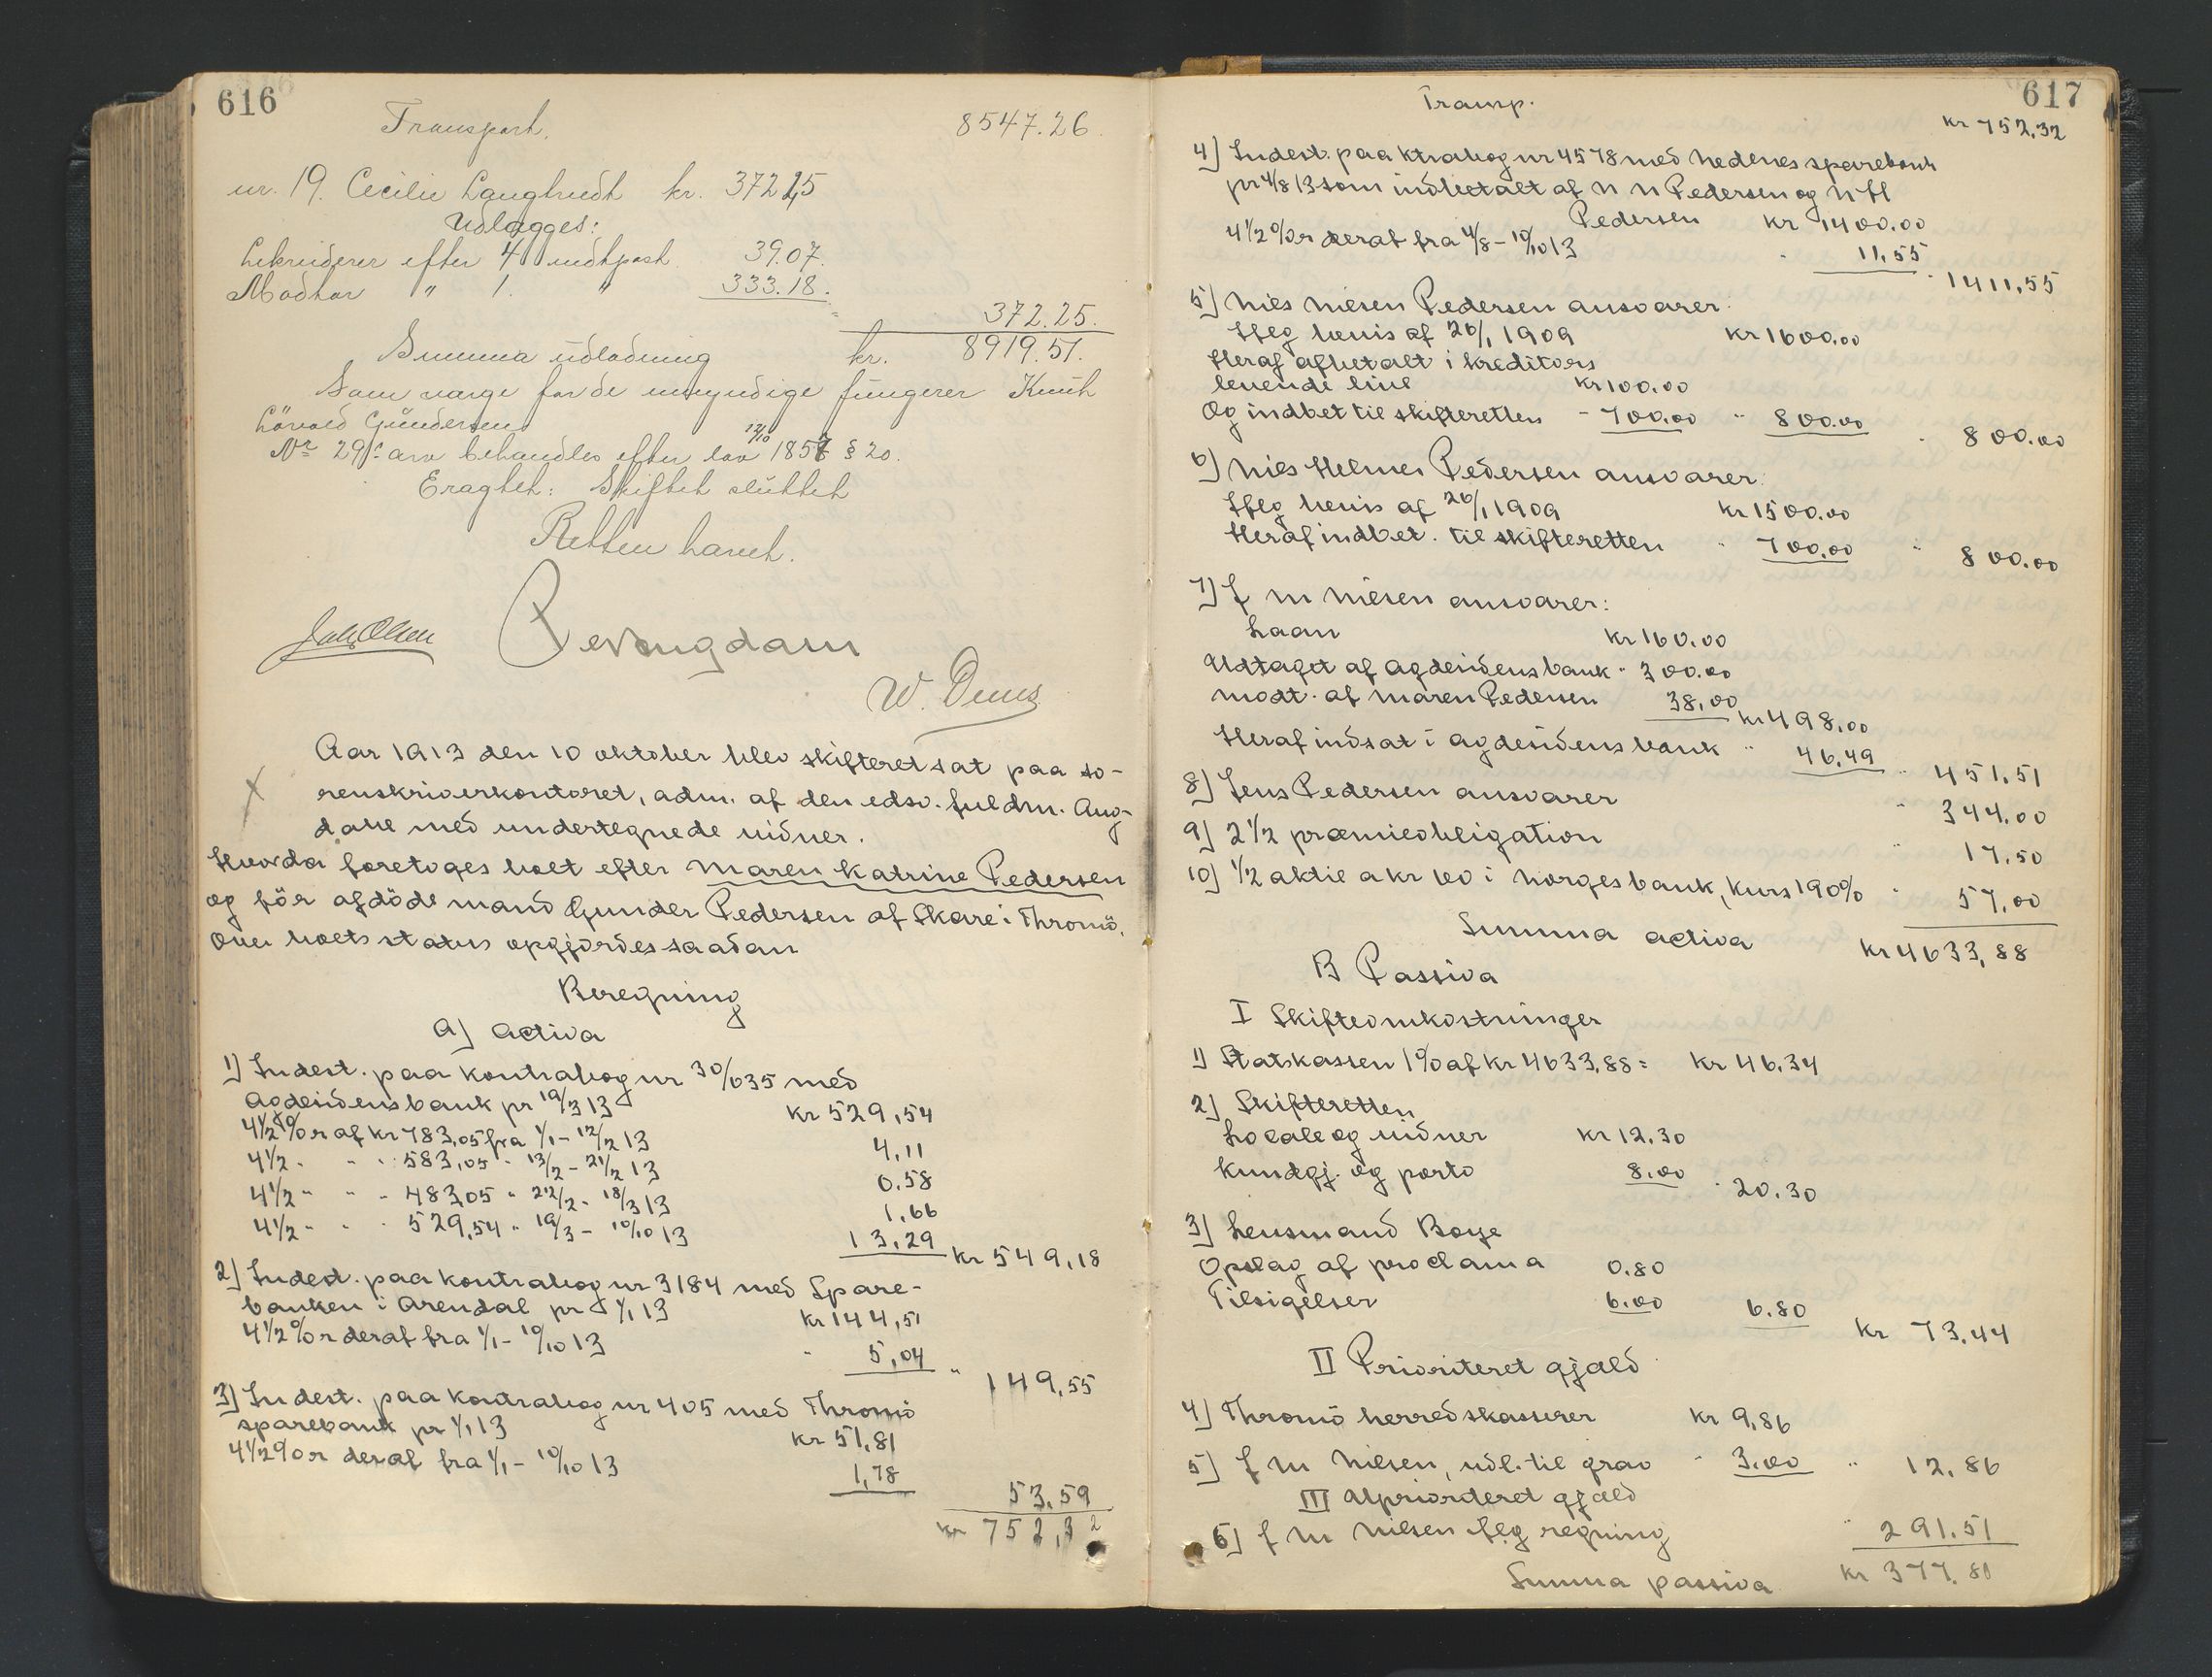 616
Transport. 8547.26.
nr. 19. Cecilie Langbredt kr. 372.25
Udlægges:
Likviderer efter 4 indtpost 39.07.
Modtar " 1. " 333.18.
372.25.
Summa udlodning kr. 8919.51.
Som værge for de umyndige fungerer Knut
Lövold Gundersen
No 29s arv behandles efter lov 12/10 1857 § 20.
Eragtet: Skiftet sluttet
Retten hævet.
Revaugdam
W. Deus
Aar 1913 den 10 oktober blev skifteret sat paa so-
renskriverkontoret, adm. af den edsv. fuldm. Aug-
dahl med undertegnede vidner.
Hvorda foretoges boet efter Maren Katrine Pedersen
og för afdöde mand Gunder Pedersen af Skare i Thromö.
Over boets status opgjordes saadan
Beregning
A) Activa
1) Indest. paa kontrabog nr 30/635 med
Agdesidens bank pr 19/3 13 kr 529,54
4½ % r af kr 783,05 fra 1/1 - 12/2 13 4,11
4½ " " " 583,05 " 13/2 - 21/2 13 0,58
4½ " " " 483,05 " 22/2 - 18/3 13 1,66
4½ " " " 529,54 " 19/3 - 10/10 13 13,29 kr 549,18
2) Indest. paa kontrabog nr 3184 med Spare-
banken i Arendal pr 1/1 13 kr 144,51
4½ % r deraf fra 1/1 - 10/10 13 " 5,04 " 149,55
3) Indest. paa kontrabog nr 405 med Thromö
sparebank pr 1/1 13 kr 51,81
4½ % r deraf fra 1/1 - 10/10 13 1,78
53,59
kr 752,32
617
Transp.
kr 752,32
4) Indest. paa ktrabog nr 4578 med Nedenes sparebank
pr 4/8 13 som indbetalt af N N Pedersen og N H
Pedersen kr 1400.00
4½ % r deraf fra 4/8 - 10/10 13 " 11,55
" 1411,55
5) Niels Nielsen Pedersen ansvarer:
Iflg bevis af 26/1 1909 kr 1600.00
Heraf afbetalt i kreditors
levende live kr 100.00
Og indbet til skifteretten - 700.00 " 800.00 " 800.00
6) Niels Helmer Pedersen ansvarer:
Iflg bevis af 26/1 1909 kr 1500.00
Heraf indbet. til skifteretten " 700.00 " 800.00
7) J M Nilsen ansvarer:
Laan kr 160.00
Udtaget af Agdesidens bank " 300.00
modt. af Maren Pedersen 38,00 kr 498,00
Heraf indsat i Agdesidens bank " 46,49 " 451,51
8) Jens Pedersen ansvarer " 344.00
9) 2 1/2 præmieobligation " 17,50
10) 1/2 aktie a kr 60 i Norges bank, kurs 190% " 57,00
Summa activa kr 4633,88
B Passiva
I Skifteomkostninger
1) Statskassen 1% af kr 4633,88 = kr 46,34
2) Skifteretten
Locale og vidner kr 12.30
Kundgj. og porto 8.00 " 20.30
3) Lensmand Boye
Opslag af proclama 0.80
Tilsigelser 6.00 6.80 kr 73.44
II Prioriteret gjæld
4) Thromö herredskasserer kr 9,86
5) J M Nilsen, udl. til grav " 3.00 " 12.86
III Uprioriteret gjæld
6) J M Nilsen iflg regning " 291.51
Summa passiva kr 377.81